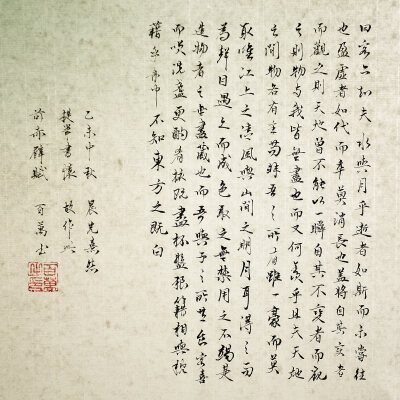 曰客亦知夫水與月乎逝者如斯而未嘗往
也盈虛者如代而卒莫消長也蓋將自其變者
而觀之則天地曾不能以一瞬自其不變者而觀
之則物與我皆無盡也而又何羨乎且夫天地
之間物各有主苟非吾之所有雖一豪而莫
取唯江上之清風與山間之明月耳得之而
為聲目遇之而成色取之無禁用之不竭是
造物者之無盡藏也而吾與子之所共食客喜
而笑洗盞更酌肴核既盡杯盤狼籍相與枕
藉乎舟中不知東方之既白
乙未中秋 晨光熹
提筆書懷 故作此
於赤壁賦 百萬書